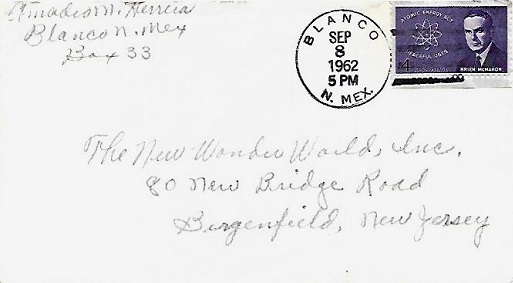 Amadio M. Herrera
Blanco N. Mex
Box 33
BLANCO
SEP
8
1962
5 PM
N. MEX.
ATOMIC ENERGY ACT
PEACEFUL USES
4
BRIEN McMAHON
The New Wonder World, Inc.
80 New Bridge Road
Bergenfield, New Jersey